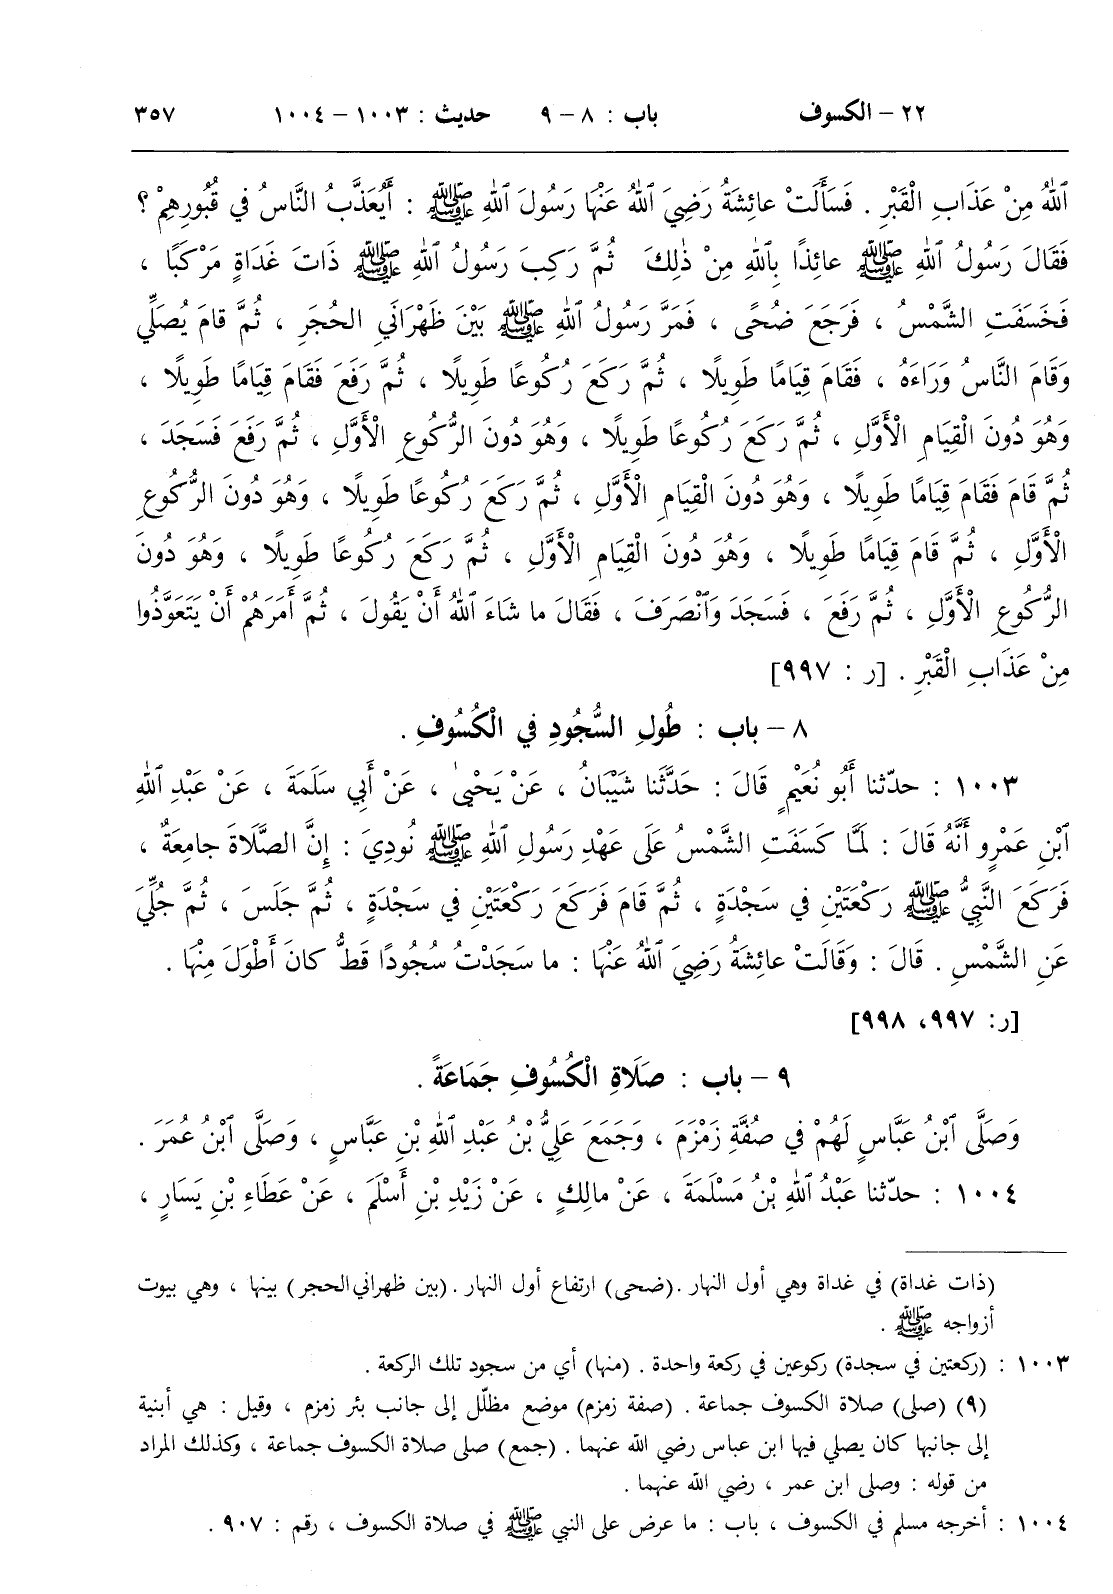 ٢٢ - الكسوف باب : ٨ - ٩ حديث : ١٠٠٣ - ١٠٠٤ ٣٥٧
ٱللهُ مِنْ عَذَابِ الْقَبْرِ . فَسَأَلَتْ عائِشَةُ رَضِيَ ٱللهُ عَنْهَا رَسُولَ ٱللهِ ﷺ : أَيُعَذَّبُ النَّاسُ في قُبُورِهِمْ ؟
فَقَالَ رَسُولُ ٱللهِ ﷺ عائِذًا بِٱللهِ مِنْ ذٰلِكَ ثُمَّ رَكِبَ رَسُولُ ٱللهِ ﷺ ذَاتَ غَدَاةٍ مَرْكَبًا ،
فَخَسَفَتِ الشَّمْسُ ، فَرَجَعَ ضُحًى ، فَمَرَّ رَسُولُ ٱللهِ ﷺ بَيْنَ ظَهْرَانَيِ الحُجَرِ ، ثُمَّ قامَ يُصَلِّي
وَقَامَ النَّاسُ وَرَاءَهُ ، فَقَامَ قِيَامًا طَوِيلًا ، ثُمَّ رَكَعَ رُكُوعًا طَوِيلًا ، ثُمَّ رَفَعَ فَقَامَ قِيَامًا طَوِيلًا ،
وَهُوَ دُونَ الْقِيَامِ الْأَوَّلِ ، ثُمَّ رَكَعَ رُكُوعًا طَوِيلًا ، وَهُوَ دُونَ الرُّكُوعِ الْأَوَّلِ ، ثُمَّ رَفَعَ فَسَجَدَ ،
ثُمَّ قَامَ فَقَامَ قِيَامًا طَوِيلًا ، وَهُوَ دُونَ الْقِيَامِ الْأَوَّلِ ، ثُمَّ رَكَعَ رُكُوعًا طَوِيلًا ، وَهُوَ دُونَ الرُّكُوعِ
الْأَوَّلِ ، ثُمَّ قَامَ قِيَامًا طَوِيلًا ، وَهُوَ دُونَ الْقِيَامِ الْأَوَّلِ ، ثُمَّ رَكَعَ رُكُوعًا طَوِيلًا ، وَهُوَ دُونَ
الرُّكُوعِ الْأَوَّلِ ، ثُمَّ رَفَعَ ، فَسَجَدَ وَٱنْصَرَفَ ، فَقَالَ ما شَاءَ ٱللهُ أَنْ يَقُولَ ، ثُمَّ أَمَرَهُمْ أَنْ يَتَعَوَّذُوا
مِنْ عَذَابِ الْقَبْرِ . [ر : ٩٩٧]
٨ - باب : طُولِ السُّجُودِ في الْكُسُوفِ .
١٠٠٣ : حدّثنا أَبُو نُعَيْمٍ قَالَ : حَدَّثَنَا شَيْبَانُ ، عَنْ يَحْيىٰ ، عَنْ أَبِي سَلَمَةَ ، عَنْ عَبْدِ ٱللهِ
ٱبْنِ عَمْرٍو أَنَّهُ قَالَ : لَمَّا كَسَفَتِ الشَّمْسُ عَلَى عَهْدِ رَسُولِ ٱللهِ ﷺ نُودِيَ : إِنَّ الصَّلَاةَ جامِعَةٌ ،
فَرَكَعَ النَّبِيُّ ﷺ رَكْعَتَيْنِ في سَجْدَةٍ ، ثُمَّ قامَ فَرَكَعَ رَكْعَتَيْنِ في سَجْدَةٍ ، ثُمَّ جَلَسَ ، ثُمَّ جُلِّيَ
عَنِ الشَّمْسِ . قَالَ : وَقَالَتْ عائِشَةُ رَضِيَ ٱللهُ عَنْهَا : ما سَجَدْتُ سُجُودًا قَطُّ كانَ أَطْوَلَ مِنْهَا .
[ر: ٩٩٧، ٩٩٨]
٩ - باب : صَلَاةِ الْكُسُوفِ جَمَاعَةً .
وَصَلَّى ٱبْنُ عَبَّاسٍ لَهُمْ في صُفَّةِ زَمْزَمَ ، وَجَمَعَ عَلِيُّ بْنُ عَبْدِ ٱللهِ بْنِ عَبَّاسٍ ، وَصَلَّى ٱبْنُ عُمَرَ .
١٠٠٤ : حدّثنا عَبْدُ ٱللهِ بْنُ مَسْلَمَةَ ، عَنْ مالِكٍ ، عَنْ زَيْدِ بْنِ أَسْلَمَ ، عَنْ عَطَاءِ بْنِ يَسَارٍ ،
(ذات غداة) في غداة وهي أول النهار .(ضحى) ارتفاع أول النهار .(بين ظهراني الحجر) بينها ، وهي بيوت
أزواجه ﷺ .
١٠٠٣ : (ركعتين في سجدة) ركوعين في ركعة واحدة . (منها) أي من سجود تلك الركعة .
(٩) (صلى) صلاة الكسوف جماعة . (صفة زمزم) موضع مظلّل إلى جانب بئر زمزم ، وقيل : هي أبنية
إلى جانبها كان يصلي فيها ابن عباس رضي الله عنهما . (جمع) صلى صلاة الكسوف جماعة ، وكذلك المراد
من قوله : وصلى ابن عمر ، رضي الله عنهما .
١٠٠٤ : أخرجه مسلم في الكسوف ، باب : ما عرض على النبي ﷺ في صلاة الكسوف ، رقم : ٩٠٧ .